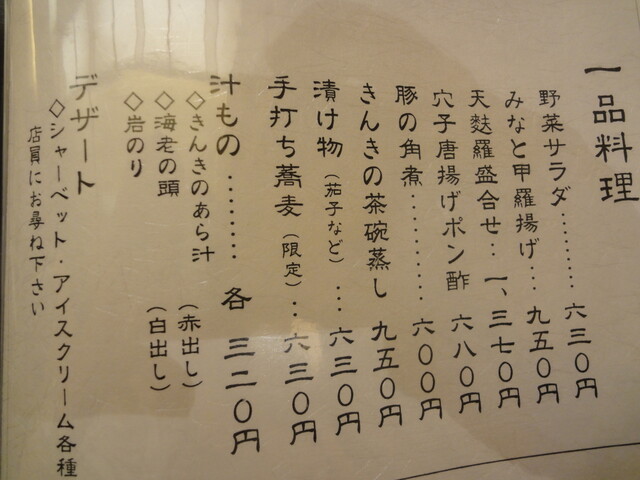 一品料理
野菜サラダ………六三〇円
みなと甲羅揚げ…九五〇円
天麩羅盛合せ‥一、三七〇円
穴子唐揚げポン酢 六八〇円
豚の角煮………六〇〇円
きんきの茶碗蒸し 九五〇円
漬け物（茄子など）…六三〇円
手打ち蕎麦（限定）‥六三〇円
汁もの………各 三二〇円
◇きんきのあら汁（赤出し）
◇海老の頭（白出し）
◇岩のり
デザート
◇シャーベット・アイスクリーム各種
店員にお尋ね下さい